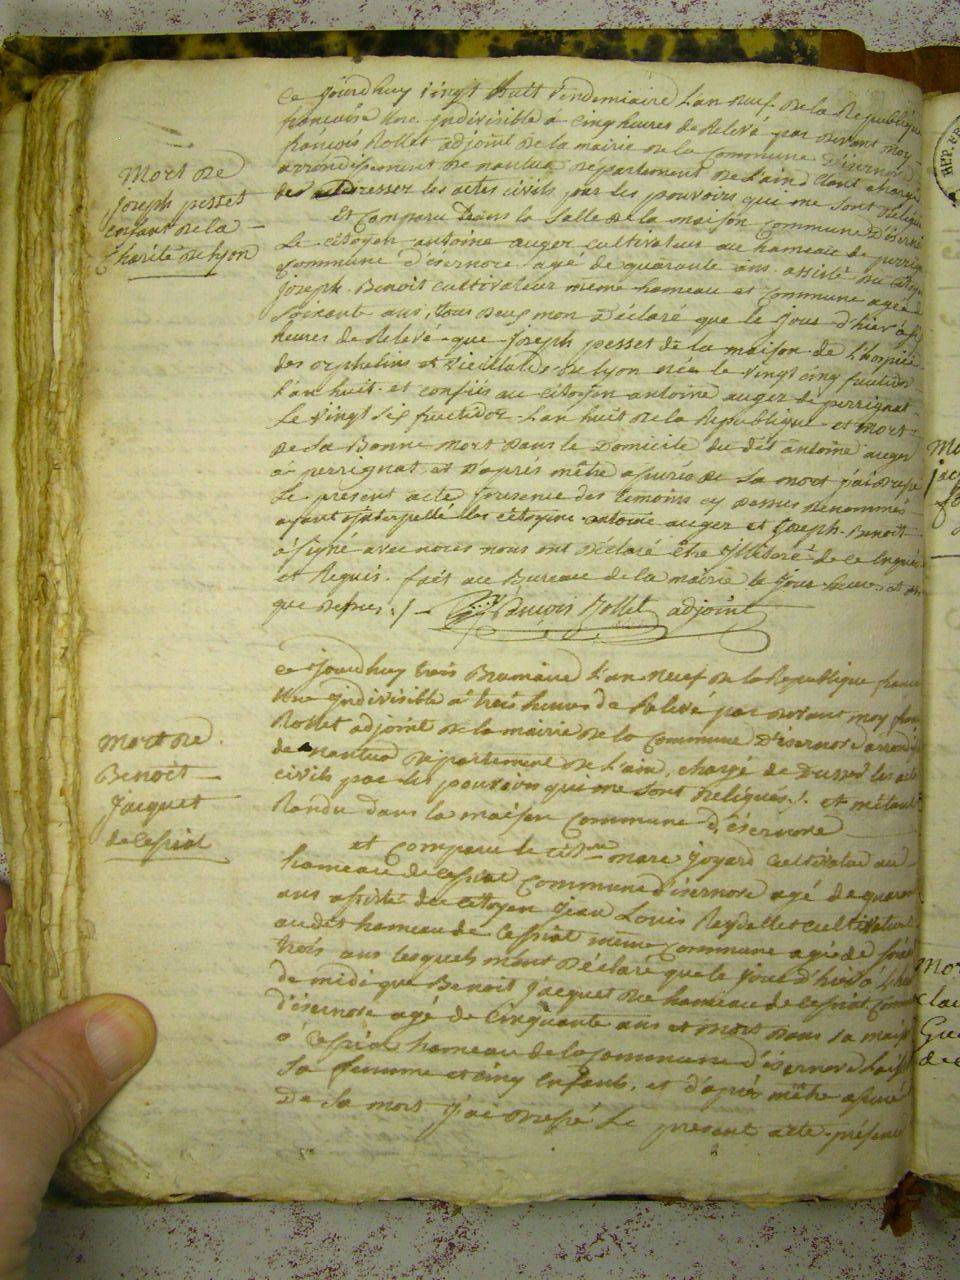 Mort de
Joseph pesset
enfant de la
Charité de Lyon
Ce jourdhuy vingt huit vendemiaire L'an neuf de la Republique
francoise une jndivisible a cinq heures de Relevé par devant moy
françois Rollet adjoint de la mairie de la Commune d'isernore
arrondissement de nantua departement de L'aind Chargé
de dresser les actes civils par les pouvoirs que me sont deligués
Et Comparu dans la Salle de la maison Commune d'isernore
Le citoyen antoine auger cultivateur au hameau de perrignat
Commune d'isernore agé de quarante ans assisté du Citoyen
Joseph Benoit cultivateur même hameau et Commune agé de
Soixante ans, tous deux mon déclaré que le jour d'hier à
heures de Relevé que Joseph pesset de la maison de L'hospice
des orphelins et Vieillards de Lyon née le vingt cinq fructidor
L'an huit et confiés au Citoyen antoine auger de perrignat
Le vingt six fructidor L'an huit de la Republique et mort
de Sa Bonne mort dans le domicile du dès antoine auger
à perrignat et d'après mêtre assuré de La mort j'ai dressé
Le present acte presence des temoins cy dessus denommés
ayant jnterpellé les citoyens antoine auger et Joseph Benoit
à signé avec nous nous ont déclaré être jllitaré de ce enquis
et Requis. fait au Bureau de la mairie le jour heures et an
que dessus ./. françois Rollet adjoint
Mort de
Benoit
Jacquet
de Cessiat
Ce jourdhuy trois Brumaire L'an neuf de la Republique francoise
une jndivisible à trois heures de Relevé par devant moy françois
Rollet adjoint de la mairie de la Commune d'isernore arrond
de nantua departement de L'ain, chargé de dresser les actes
civils par les pouvoirs qui me sont deligués ./. et m'étant
Randu dans la maison Commune d'isernore
et Comparu le citoyen marc joyard cultivateur au
hameau de Cessiat Commune d'isernore agé de quarante
ans assisté du Citoyen Jean Louis Reydellet cultivateur
audès hameau de Cessiat même Commune agé de
trois ans lesquels m'ont déclaré que le jour d'hier à
de midi que Benoit Jacquet du hameau de Cessiat Commune
d'isernore agé de Cinquante ans et mort dans sa maison
à Cessiat hameau de la Commune d'isernore Laissé
Sa femme et Cinq enfants, et d'après mêtre assuré
De Sa mort j'ai dressé Le present acte présence